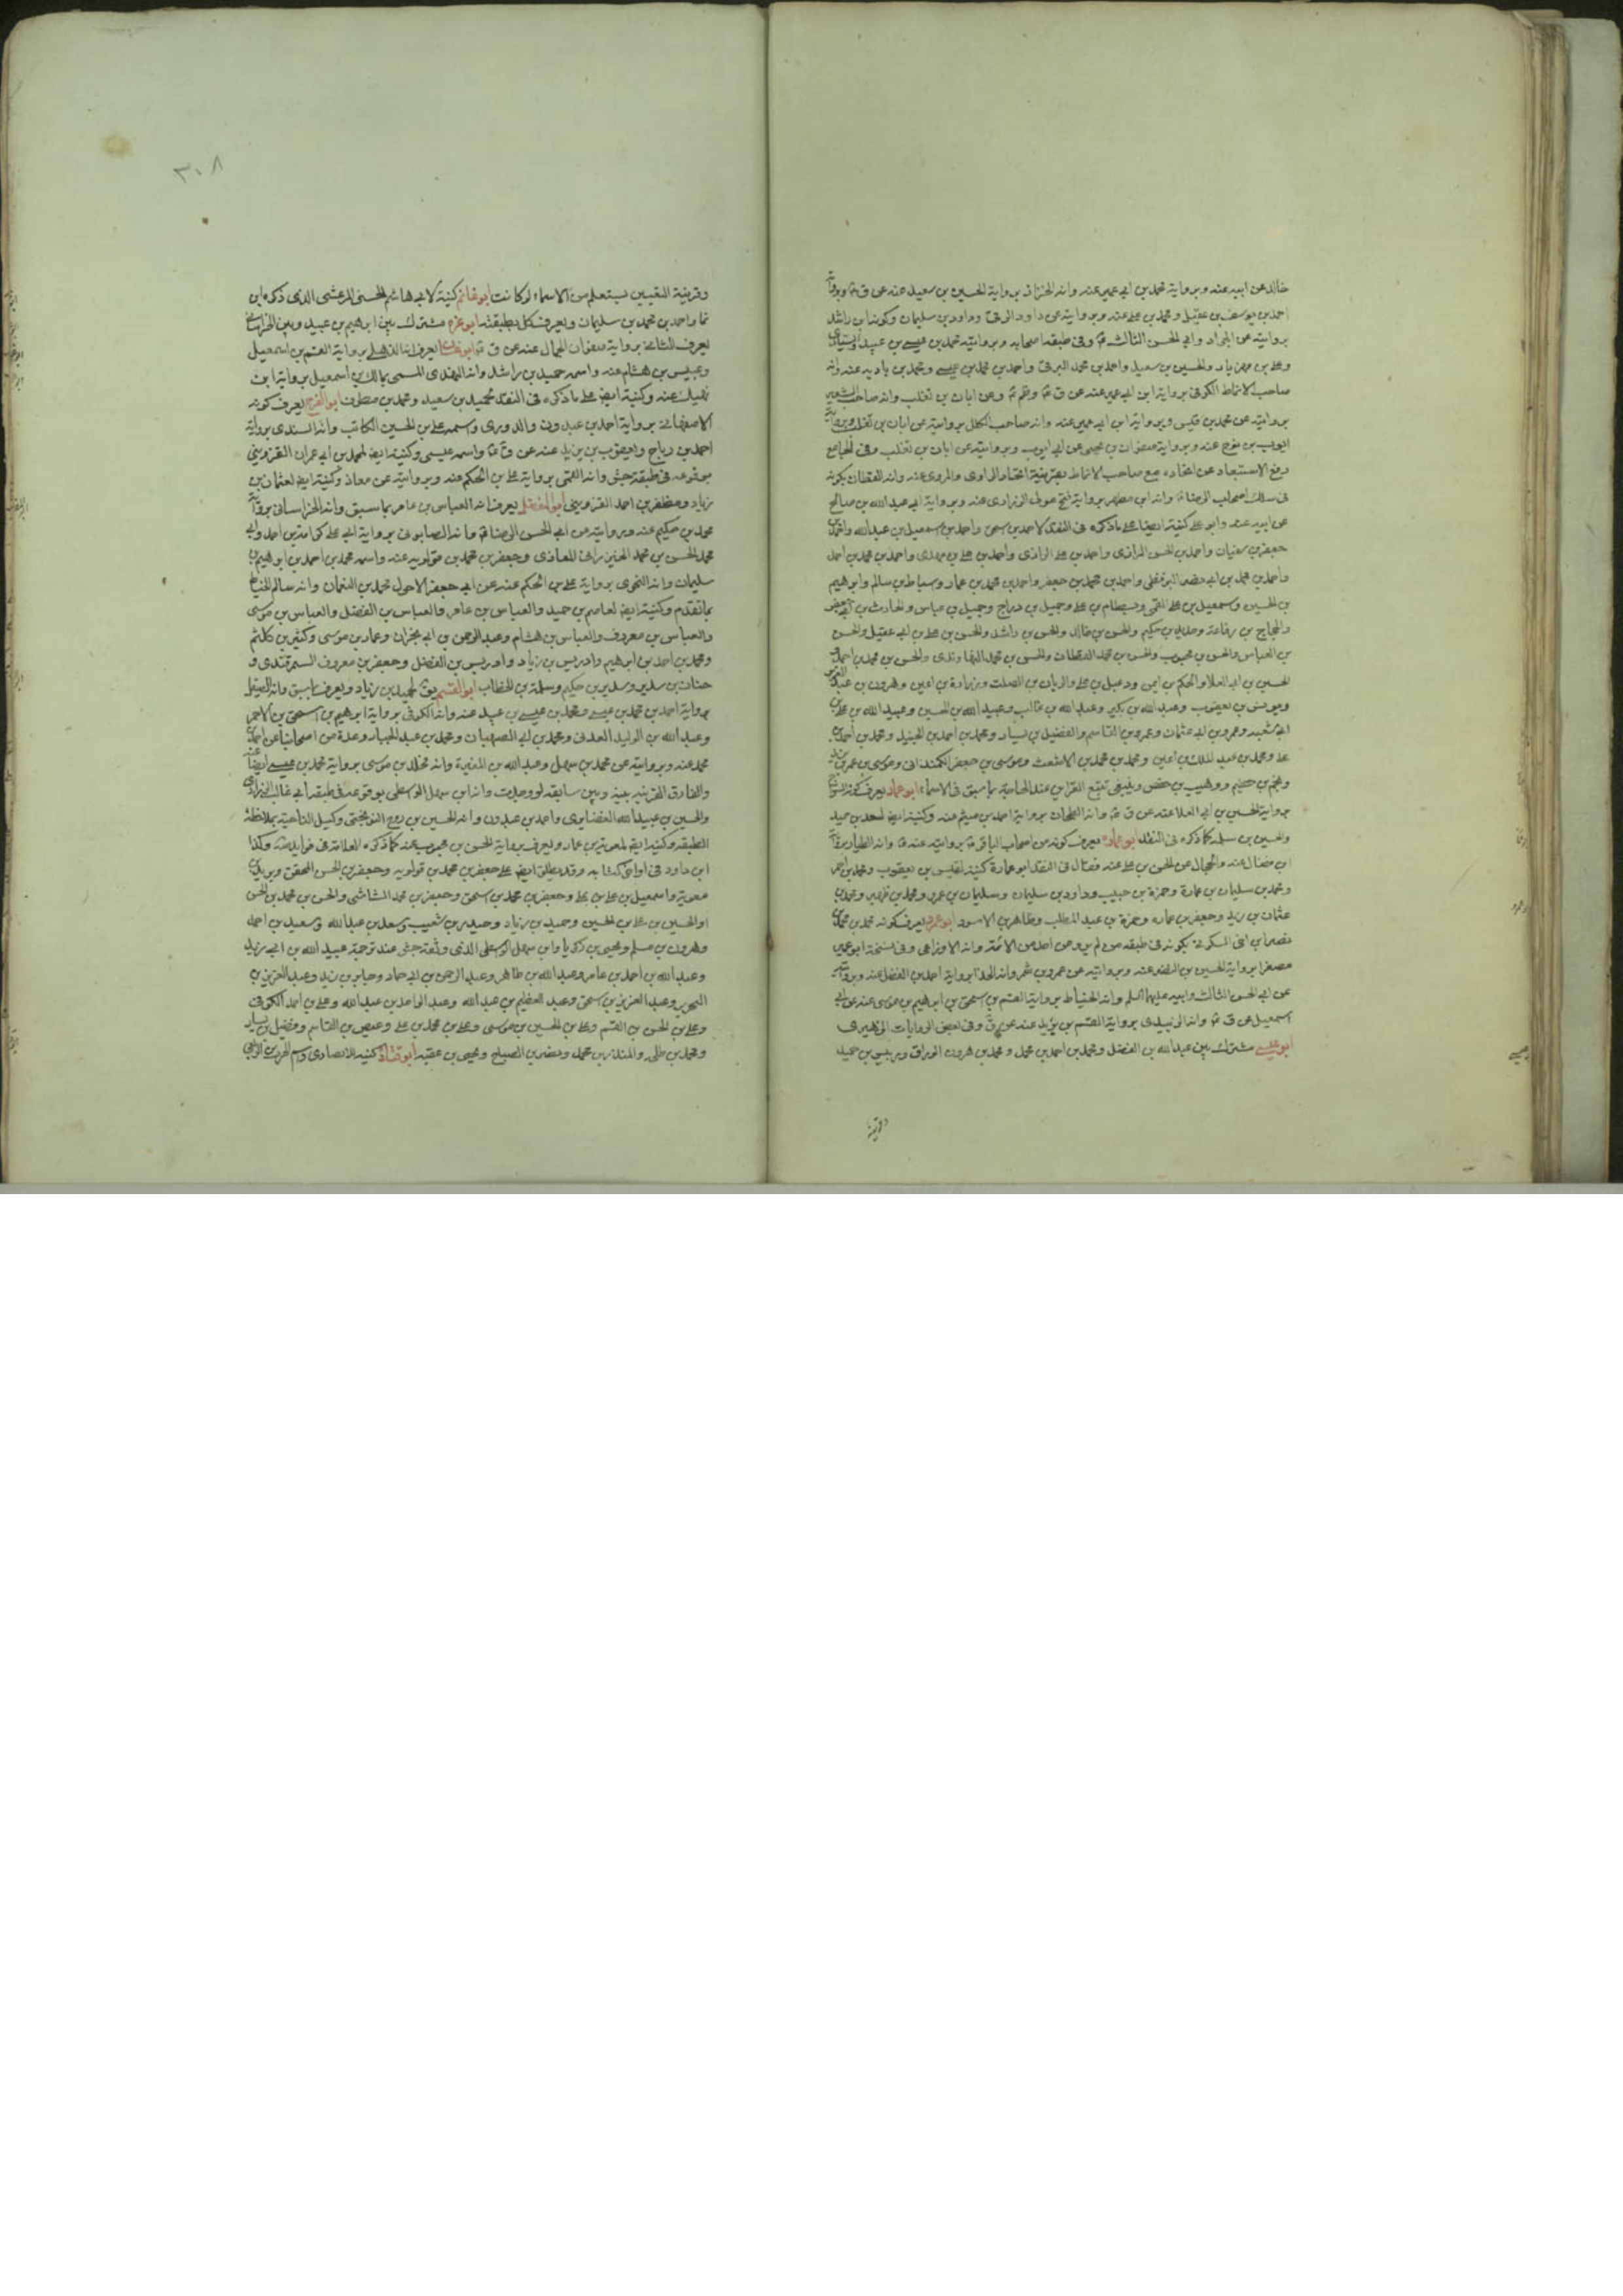 خالد عن ابيه عنه وبرواية محمد بن ابي عمير عنه وانه الخزاز برواية الحسين بن سعيد عنه عن ق
احمد بن يوسف بن عقيل ومحمد بن علي عنه وبروايته عن داود الرقي وداود بن سليمان وكونه ابن راشد
بروايته عن الجواد وابي الحسن الثالث وفي طبقة اصحابه وبرواية محمد بن عيسى بن عبيد
وعلي بن مهزيار والحسين بن سعيد واحمد بن محمد البرقي واحمد بن محمد بن عيسى ومحمد بن عنه وانه
صاحب الانماط الكوفي برواية ابن ابي عمير عنه عن ق وعن ابان بن تغلب وانه صاحب الشعير
بروايته عن محمد بن قيس وبرواية ابن ابي عمير عنه وانه صاحب الكلل بروايته عن ابان بن تغلب وبرواية
عنه وبرواية صفوان بن يحيى عن ابي ايوب وبروايته عن ابان بن تغلب وفي الجامع
رفع الاستبعاد عن اتحاده مع صاحب الانماط بقرينة اتحاد الراوي والمروي عنه وانه القطان بكونه
في سلك اصحاب الرضا وانه ابن مطهر برواية وبرواية ابي عبد الله بن صالح
عن ابيه عنه وابو علي كنية ايضا على ما ذكره في النقد لاحمد بن اسحق واحمد بن اسمعيل بن عبد الله واحمد بن
جعفر بن سفيان واحمد بن الحسن الرازي واحمد بن علي الرازي واحمد بن علي بن مهدي واحمد بن محمد بن احمد
واحمد بن محمد بن ابي نصر واحمد بن محمد بن جعفر واحمد بن محمد بن عمار وبسباط بن سالم وابرهيم
بن الحسين واسمعيل بن علي القمي وبسطام بن علي وجميل بن دراج وجميل بن عياش والحارث بن
والحجاج بن رفاعة وحديد بن حكيم والحسن بن خالد والحسن بن راشد والحسن بن علي بن ابي عقيل والحسن
بن العباس والحسن بن محبوب والحسن بن محمد القطان والحسن بن محمد النهاوندي والحسن بن محمد بن احمد
الحسين بن ابي العلا والحكم بن ايمن ودعبل بن علي والريان بن الصلت وزرارة بن اعين وهرون بن
ويونس بن يعقوب وعبد الله بن بكير وعبد الله بن غالب وعبيد الله بن الحسين وعبيد الله بن علي بن
ابي شعبه وعمرو بن ابي عثمان وعمرو بن القاسم والفضيل بن يسار ومحمد بن احمد بن الجنيد ومحمد بن احمد بن
علي ومحمد بن عبد الملك بن اعين ومحمد بن محمد بن الاشعث وموسى بن جعفر الكمنداني وموسى بن عمر بن
ووهيب بن حفص وينبغي تتبع القراين عند الحاجة بما سبق في الاسماء ابو عمار يعرف كونه
برواية الحسين بن ابي العلا عنه عن ق وانه الطحان برواية احمد بن ميثم عنه وكنية ايضا
والحسين بن سلمة كما ذكره في النقد ابو عمارة يعرف كونه من اصحاب الباقر بروايته عنه وانه الطيار برواية
ابن فضال عنه والحجال عن الحسن بن علي عنه فضال في النقد ابو عمارة كنية لقيس بن يعقوب ومحمد بن احمد
ومحمد بن سليمان بن عمارة وحمزة بن حبيب وداود بن سليمان وسليمان بن عمرو ومحمد بن ومحمد بن
عثمان بن زيد وجعفر بن عماره وحمزة بن عبد المطلب وطاهر بن الاسود ابو عمرو يعرف كونه محمد بن محمد بن
نصر ابن اخي السكوني بكونه في طبقة من لم يرو عن احد من الائمة وانه الاوزاعي وفي نسخة ابو عمير
مصغرا برواية الحسين بن النضر عنه وبروايته عن عمرو بن شمر وانه الحذا برواية احمد بن الفضل عنه وبروايته
عن ابي الحسن الثالث وابيه عليهما السلم وانه الخياط برواية القسم بن اسحق بن ابرهيم بن موسى عنه عن ابي
اسمعيل عن ق وانه الزبيدي برواية القسم بن يزيد عنه عن ق وفي بعض الروايات
ابو عيسى مشترك بين عبد الله بن الفضل ومحمد بن احمد بن محمد ومحمد بن هرون الوراق
وقرينة
٣٠٨
وقرينة التعيين يستعلم من الاسماء لو كانت ابو غانم كنية لابي هاشم الحسني المرعشي الذي ذكره ابن
نما واحمد بن محمد بن سليمان ويعرف كل بطبقته ابو غرة مشترك بين ابرهيم بن عبيد وبين الخراساني
يعرف الثاني برواية صفوان الجمال عنه عن ق يعرف انه الذهلي برواية القسم بن اسمعيل
وعبيس بن هشام عنه واسمه حميد بن راشد وانه النهدي المسمى بمالك بن اسمعيل برواية ابن
نهيك عنه وكنية ايضا على ما ذكره في النقد لحميد بن سعيد ومحمد بن مطرف ابو الفرج يعرف كونه
الاصفهاني برواية احمد بن عبدون والدوري واسمه علي بن الحسين الكاتب وانه السندي برواية
احمد بن رباح ويعقوب بن يزيد عنه عن ق واسمه عيسى وكنية ايضا لمحمد بن ابي عمران القزويني
بوقوعه في طبقة جش وانه القمي برواية علي بن الحكم عنه وبروايته عن معاذ وكنية ايضا لعثمان بن
زياد ومظفر بن احمد القزويني ابو الفضل يعرف انه العباس بن عامر بما سبق وانه الخراساني برواية
محمد بن حكيم عنه وبروايته عن ابي الحسن الرضا وانه الصابوني برواية ابي علي كرامة بن احمد وابي
محمد الحسن بن محمد وجعفر بن محمد بن قولويه عنه واسمه محمد بن احمد بن ابرهيم بن
سليمان وانه النحوي برواية علي بن الحكم عنه عن ابي جعفر الاحول محمد بن النعمان وانه سالم الحناط
بما تقدم وكنية ايضا لعاصم بن حميد والعباس بن عامر والعباس بن الفضل والعباس بن موسى
والعباس بن معروف والعباس بن هشام وعبد الرحمن بن ابي نجران وعمار بن موسى وكثير بن كلثم
ومحمد بن احمد بن ابرهيم وادريس بن زياد وادريس بن الفضل وجعفر بن معروف السمرقندي و
حنان بن سدير وسدير بن حكيم وسلمة بن الخطاب ابو القسم لحميد بن زياد ويعرف بما سبق وانه الصيقل
برواية احمد بن محمد بن عيسى ومحمد بن عيسى بن عبيد عنه وانه الكوفي برواية ابرهيم بن اسحق بن الاحمر
وعبد الله بن الوليد العدني ومحمد بن ابي الصهبان ومحمد بن عبد الجبار وعدة من اصحابنا عن احمد بن
محمد عنه وبروايته عن محمد بن سهل وعبد الله بن المغيرة وانه مخلد بن موسى برواية محمد بن عيسى ايضا عنه
والفارق القرينة بينه وبين سابقه لو وجدت وانه ابن سهل الواسطي بوقوعه في طبقة ابي غالب الزراري
والحسين بن عبيد الله الغضايري واحمد بن عبدون وانه الحسين بن روح النوبختي وكيل الناحية بملاحظة
الطبقة وكنية ايضا لمعوية بن عمار ويعرف برواية الحسن بن محبوب عنه كما ذكره العلامة في فوايد وكذا
ابن داود في اواخر كتابه وقد يطلق ايضا على جعفر بن محمد بن قولويه وجعفر بن الحسن المحقق وبريد بن
معوية واسمعيل بن علي بن علي وجعفر بن محمد بن اسحق وجعفر بن محمد الشاشي والحسن بن محمد بن الحسن
والحسين بن علي بن الحسين وحميد بن زياد وحيدر بن شعيب وسعد بن عبد الله وسعيد بن احمد
وهرون بن مسلم ويحيى بن زكريا وابن سهل الواسطي الذي وثقه جش عند ترجمة عبيد الله بن ابي زيد
وعبد الله بن احمد بن عامر وعبد الله بن طاهر وعبد الرحمن بن ابي حماد وجابر بن يزيد وعبد العزيز بن
البحر وعبد العزيز بن اسحق وعبد العظيم بن عبد الله وعبد الواحد بن عبد الله وعلي بن احمد الكوفي
وعلي بن الحسن بن القسم وعلي بن الحسين بن موسى وعلي بن محمد بن علي وعيص بن القاسم وفضيل بن يسار
ومحمد بن علي والمنذر بن محمد ونصر بن الصباح ويحيى بن عقبه ابو قتادة كنية للانصاري